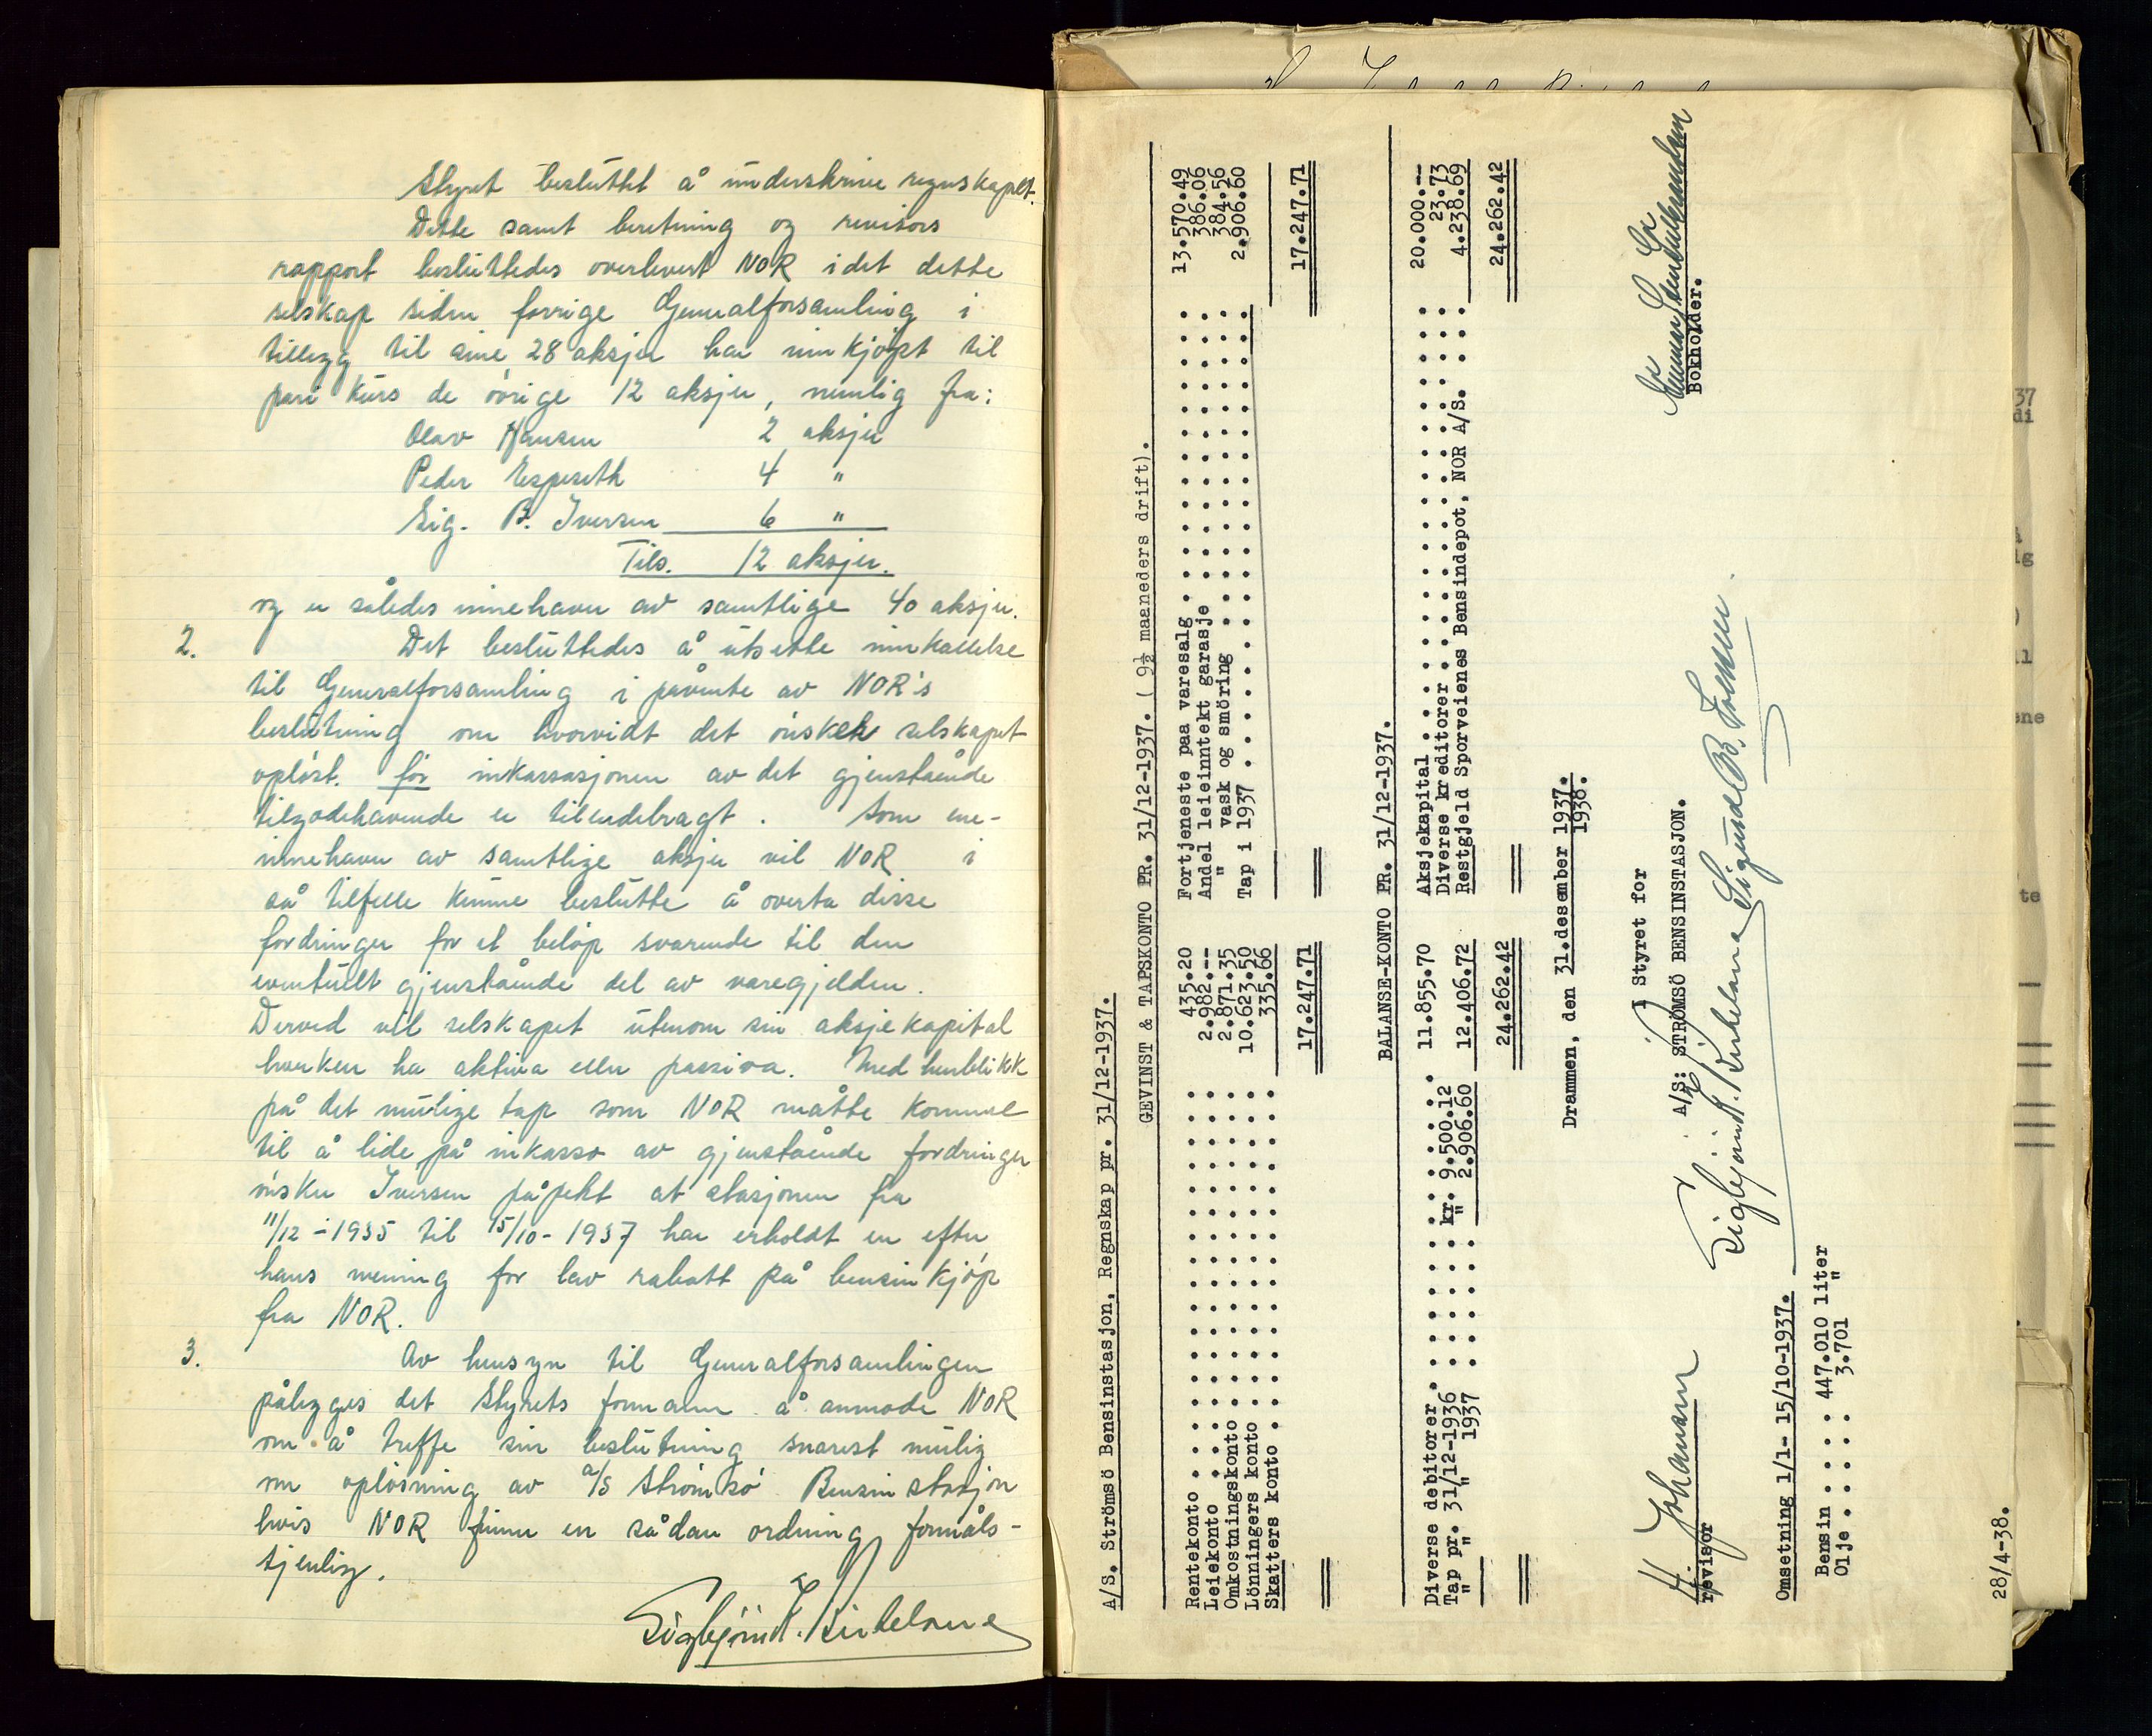 Styret besluttet å underskrive regnskapet.
Dette samt beretning og revisors
rapport besluttedes overlevert NOR idet dette
selskap siden forrige Generalforsamling i
tillegg til sine 28 aksjer har innkjöpt til
pari kurs de övrige 12 aksjer, nemlig fra:
Olav Hansen 2 aksjer
Peder Espeseth 4 "
Sig. B. Iversen 6 "
Tils. 12 aksjer.
og er således innehaver av samtlige 40 aksjer.
2. Det besluttedes å utsette innkallelse
til Generalforsamling i påvente av NOR's
beslutning om hvorvidt det ønskes selskapet
oplöst. för inkassasjonen av det gjenstående
tilgodehavende er tilendebragt. Som ene-
innehaver av samtlige aksjer vil NOR i
så tilfelle kunne beslutte å overta disse
fordringer for et belöp svarende til den
eventuelt gjenstående del av varegjelden.
Derved vil selskapet utenom sin aksjekapital
hverken ha aktiva eller passiva. Med henblikk
på det mulige tap som NOR måtte komme
til å lide på inkasso av gjenstående fordringer
ønsker Iversen påpekt at stasjonen fra
11/12-1935 til 15/10-1937 har erholdt en efter
hans mening for lav rabatt på bensinkjöp
fra NOR.
3. Av hensyn til Generalforsamlingen
pålegges det Styrets formann å anmode NOR
om å treffe sin beslutning snarest mulig
om oplösning av a/s Strömsö Bensinstasjon
hvis NOR finner en sådan ordning formåls-
tjenlig.
Sigbjörn K. Birkeland
A/S. Strömsö Bensinstasjon, Regnskap pr. 31/12-1937.
GEVINST & TAPSKONTO PR. 31/12-1937. ( 9½ maaneders drift).
Rentekonto . . . . . 435.20 Fortjeneste paa varesalg . . . . . 13.570.49
Leiekonto . . . . . 2.982.-- Andel leieinntekt garasje . . . . . 386.06
Omkostningskonto . . . . . 2.871.35 " vask og smöring . . . . . 384.56
Lönningers konto . . . . . 10.623.50 Tap i 1937 . . . . . 2.906.60
Skatters konto . . . . . 335.66
17.247.71 17.247.71
BALANSE-KONTO PR. 31/12-1937.
Diverse debitorer . . . . . 11.855.70 Aksjekapital . . . . . 20.000.--
Tap pr. 31/12-1936 . . . . . kr. 9.500.12 Diverse kreditorer . . . . . 23.73
" " 1937 . . . . . " 2.906.60 12.406.72 Restgjeld Sporveienes Bensindepot, NOR A/S. . . . 4.238.69
24.262.42 24.262.42
Drammen, den 31.desember 1937.
1938.
I Styret for
A/S: STRÖMSÖ BENSINSTASJON.
H. Johansen
revisor
Sigbjörn K. Birkeland Sigurd B. Iversen
Bokholder.
Omsetning 1/1- 15/10-1937.
Bensin . . . . . 447.010 liter
Olje . . . . . 3.701 "
28/4-38.
37
di
lg
ll
ene
te